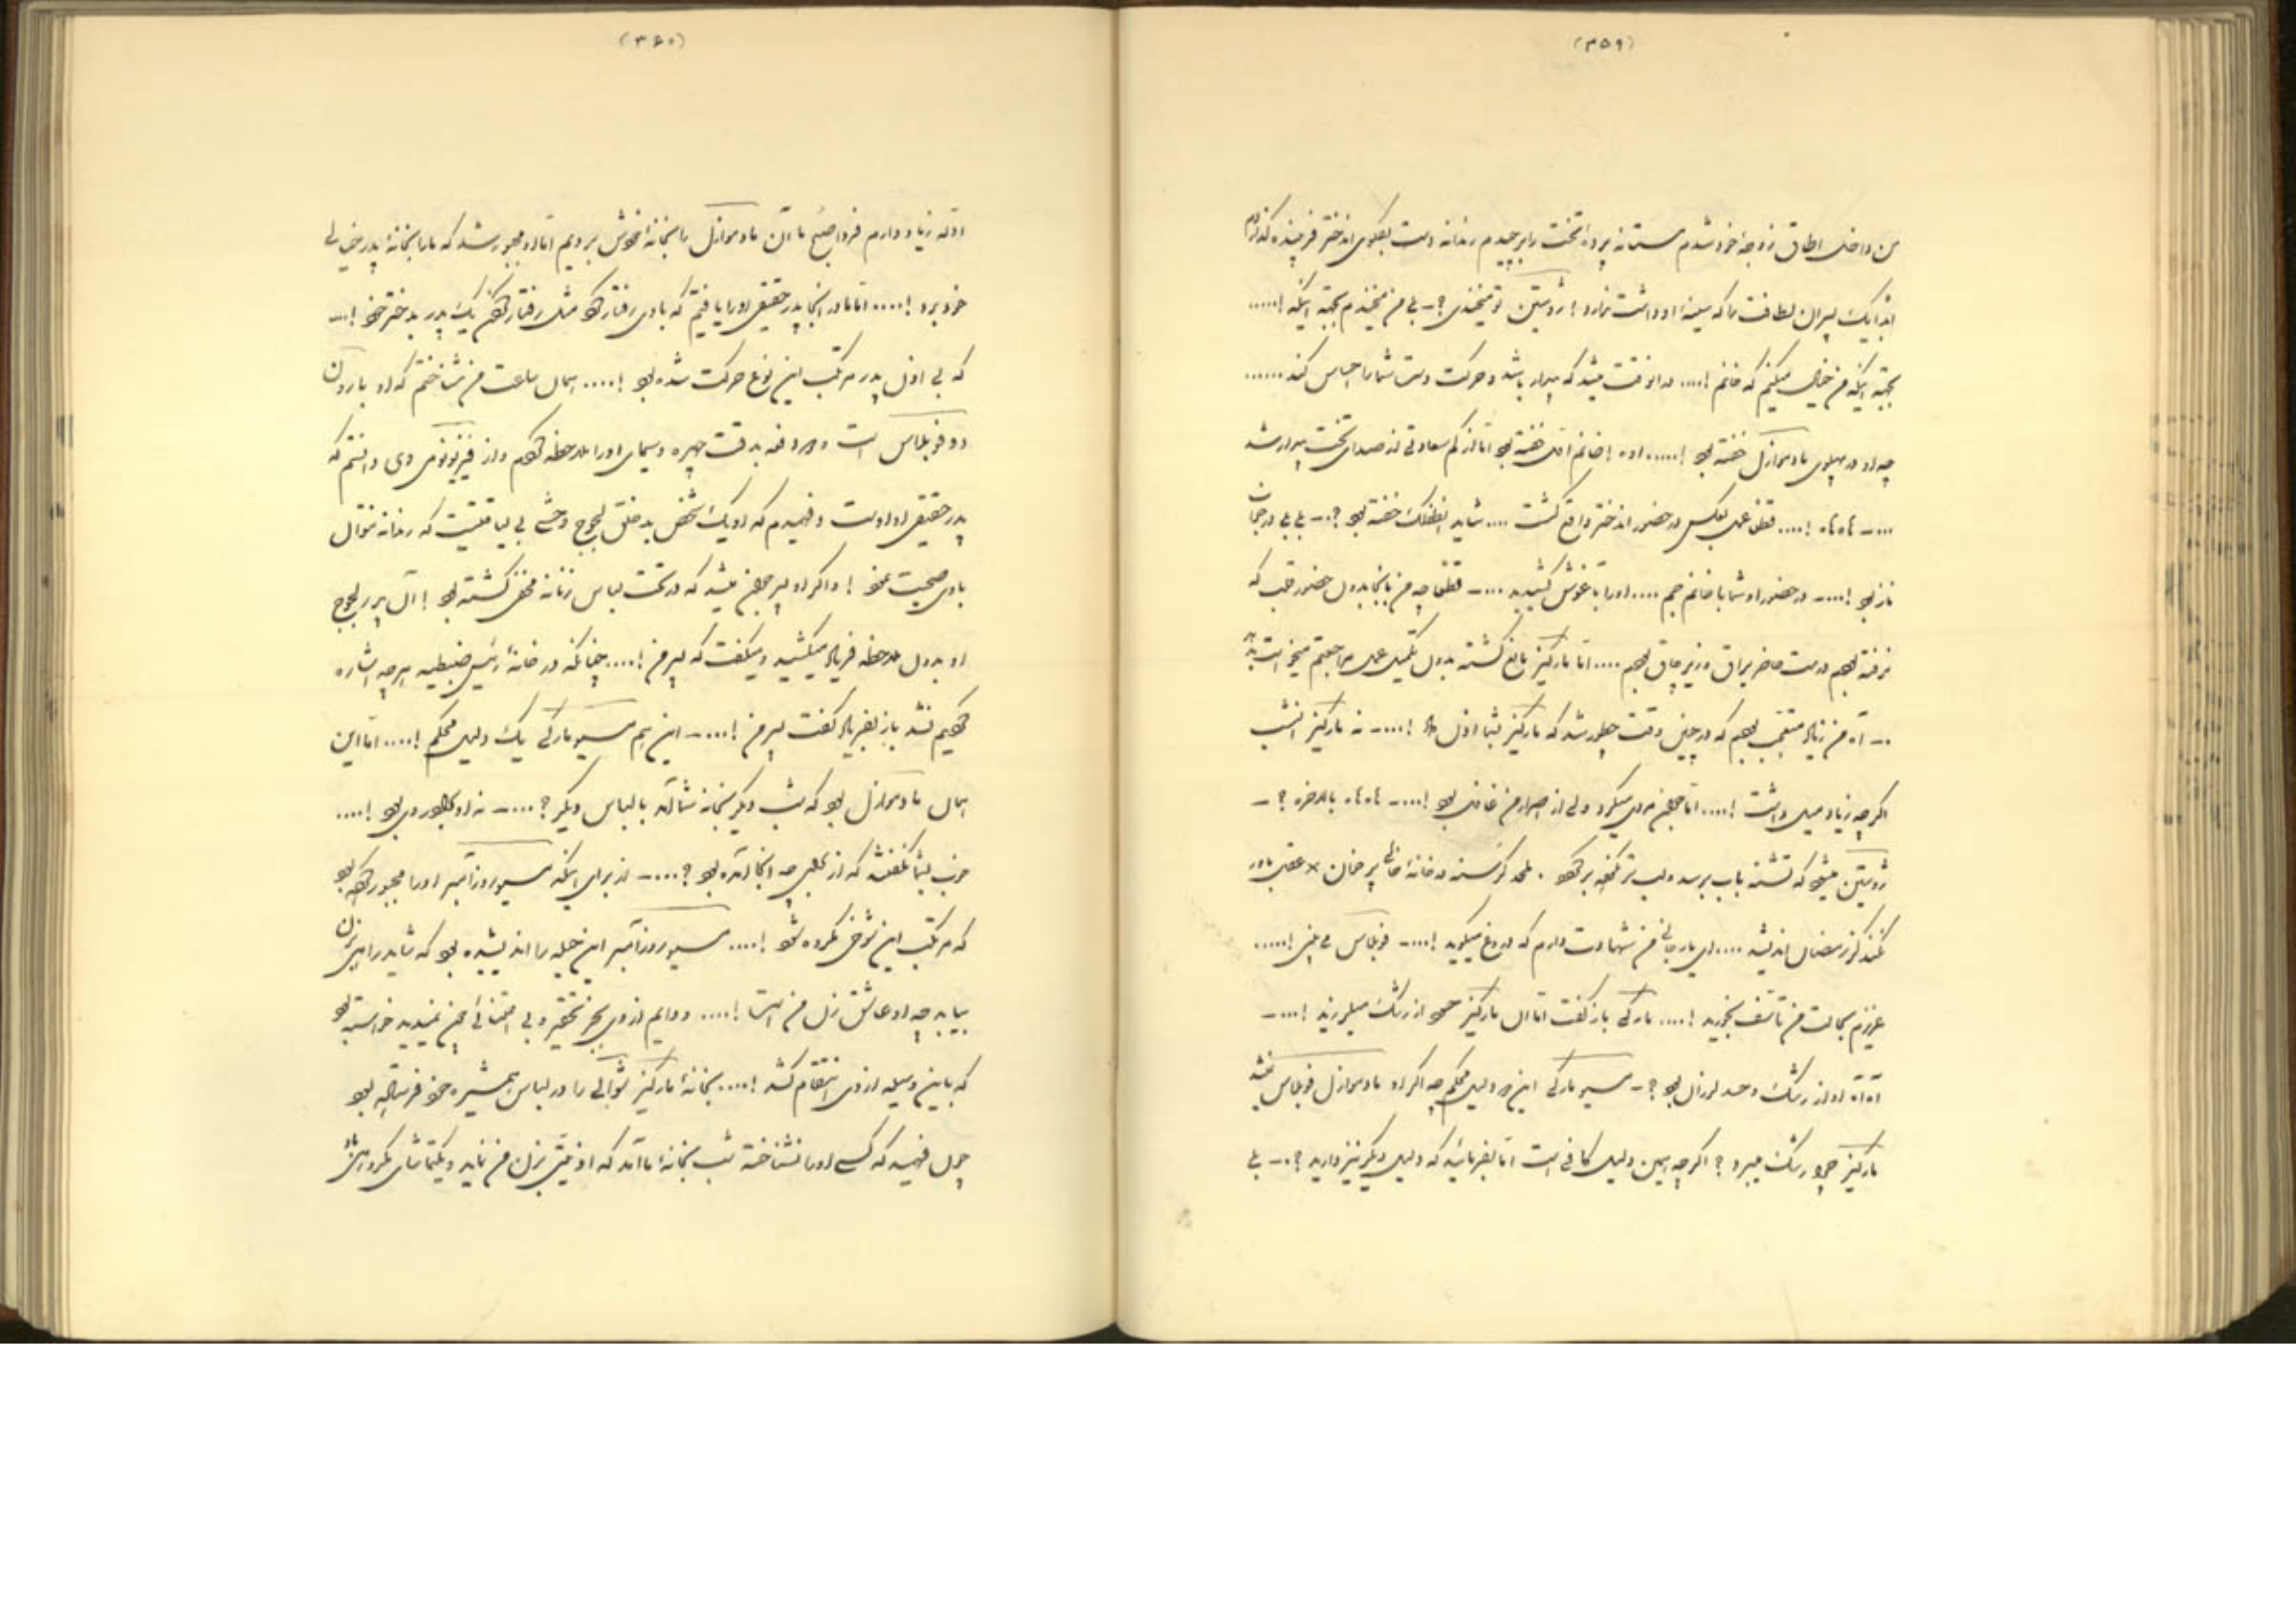 (۳۵۹)
من داخل اطاق زوجهٔ خود شدم مستانه پرده تخت را برچیدم رندانه دست بپهلوی اندختر فرخنده
یک پسران لطافت را که سینهٔ او داشت ندارد! ژوستین تو میخندی؟ - بلی من میخندم بجهة اینکه!.....
بجهة اینکه من خیال میکنم که خانم!.... در انوقت میشد که بیدار باشد و حرکت دست شما را احساس کند......
چه او در پهلوی مادموازل خفته بود!..... اوه! خانم خفته بود اما از کم سعادتی از صدای تخت بیدار شد
....- آه آه!.... فقط عمل بوکس در حضور اندختر واقع گشت .... شاید خفته بود؟.- بلی بلی در خواب
ناز بود!....- در حضور او شما با خانم هم .... او را بآغوش کشیدید ....- فقط چه من باینجا بدون حضور قلب که
نرفته بودم درست حاضر یراق و زیر چاق بودم .... اما مارکیز مانع گشته بدون تکمیل عمل مراجعتم میخواست
.- آه من زیاد متعجب بودم که در چنین وقت چطور شد که مارکیز بشما اذن داد!....- نه مارکیز انشب
اگر چه زیاد میل داشت!.... اما میکرد ولی از اصرار من غافل بود!....- آه آه بالاخره؟ -
ژوستین میشود که تشنه بآب برسد و لب تر نکرده برگردد . ملحد گرسنه در خانهٔ خالی پر خوان × عقل باور
نکند کز رمضان اندیشد .... ای بارجانی من شهادت دارم که دروغ میگوید!....- فوبلاس می بینی!.....
عزیزم بحالت من تأسف بخورید!.... مارکی باز گفت اما ان مارکیز خود از رشک میلرزید!....-
آه آه او از رشک و حسد لرزان بود؟ - مسیو مارکی این هم دلیل محکم چه اگر او مادموازل فوبلاس نمیشد
مارکیز چرا رشک میبرد؟ اگر چه همین دلیل کافی است اما بفرمائید که دلیل دیگر نیز دارید؟.- بلی
(۳۶۰)
ادله زیاد دارم فردا صبح ما آن مادموازل را بخانهٔ خودش بردیم اما او مجبور شد که ما را بخانهٔ پدر خیالی
خود برد!.... اما ما در اینجا پدر حقیقی او را یافتیم که با وی رفتار کرد مثل رفتار کردن یک پدر بدختر خود!...
که بی اذن پدر مرتکب این نوع حرکت شده بود!.... همان ساعت من شناختم که او بارون
دو فوبلاس است و دفعه بدقت چهره و سیمای او را ملاحظه کردم و از فیزیونومی وی دانستم که
پدر حقیقی او اوست و فهمیدم که او یک شخص بدخلق لجوج وحشی بی لیاقتیست که رندانه نتوان
با وی صحبت نمود! و اگر او پسر جوان میشد که در تحت لباس زنانه مخفی گشته بود! آن پدر لجوج
او بدون ملاحظه فریاد میکشید و میگفت که پسر من!.... چنانکه در خانهٔ رئیس ضبطیه هر چه اشاره
کردیم نشد باز بفریاد گفت پسر من!....- این هم مسیو مارکی یک دلیل محکم!.... اما این
همان مادموازل بود که شب دیگر بخانهٔ شما آمد با لباس دیگر؟....- نه او بود!....
خوب بشما نگفتند که از برای چه انجا آمده بود؟....- از برای اینکه مسیو روزآمبر او را مجبور کرده بود
که مرتکب این شوخی کرده شود!.... مسیو روزآمبر این حیله را اندیشیده بود که شاید راهی بزن
بیابد چه او عاشق زن من است!.... و دایم از وی بجز تحقیر و بی اعتنائی چیزی نمیدید خواسته بود
که باین وسیله از وی انتقام کشد!.... بخانهٔ مارکیز شوالی را در لباس همشیرهٔ خود فرستاده بود
چون فهمید که کسی او را نشناخته شب بخانهٔ ما آمد که اذیتی بزن من نماید و